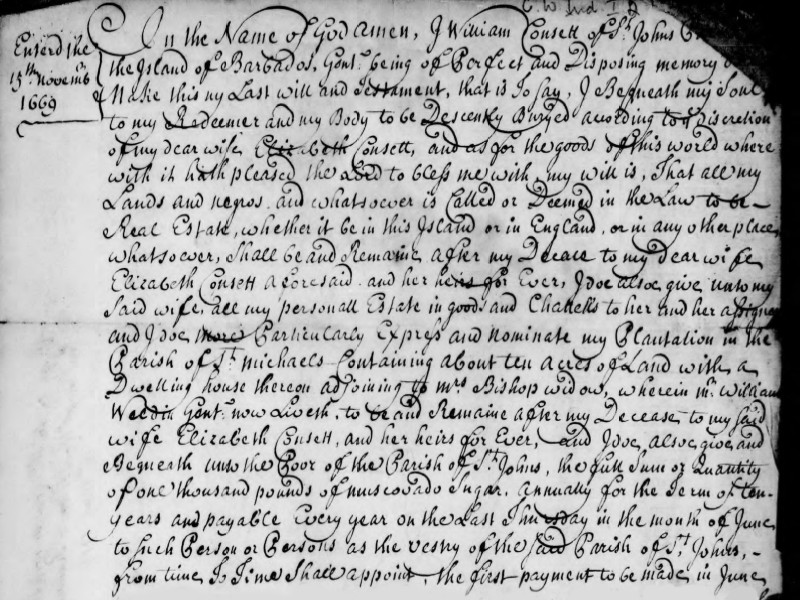 Enterd the
15th Novemb
1669
In the Name of God Amen, I William Consett of St. Johns
the Island of Barbados, Gent. being of Perfect and Disposing memory
Make this my Last will and Testament, that is To say, I Begneath my Soul
to my Redeemer and my Body to be Descently Buryed acording to ye Discretion
of my dear wife Elizabeth Consett, and as for the goods of this world where
with it hath pleased the Lord to bless me with, my will is, That all my
Lands and negros and whatsoever is Called or Deemed in the Law to be -
Real Estate, whether it be in this Island or in England, or in any other place
whatsoever, Shall be and Remaine after my Decease to my dear wife
Elizabeth Consett aforesaid and her heirs for Ever, I doe alsoe give unto my
Said wife, all my personall Estate in goods and Chattells to her and her assignes
and I doe more Particularly Express and nominate my Plantation in the
Parish of St. michaels Containing about ten acres of Land with a
Dwelling house thereon adjoining to mrs Bishop widow, wherein mr. William
Weddin Gent. now Liveth, to be and Remaine after my Decease to my said
wife Elizabeth Consett, and her heirs for Ever, and I doe alsoe give and
Begneath unto the Poor of the Parish of St. Johns, the full Sum or Quantity
of one thousand pounds of muscovado Sugar, annually for the Term of ten
years and payable Every year on the Last Thursday in the month of June
to such Person or Persons as the vestry of the said Parish of St. Johns, -
from time To Time Shall appoint, the first payment to be made in June